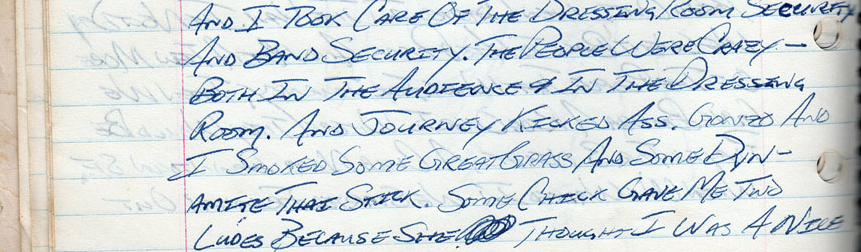 AND I TOOK CARE OF THE DRESSING ROOM SECURITY
AND BAND SECURITY. THE PEOPLE WERE CRAZY —
BOTH IN THE AUDIENCE & IN THE DRESSING
ROOM. AND JOURNEY KICKED ASS. GONZO AND
I SMOKED SOME GREAT GRASS AND SOME DYN-
AMITE THAI STICK. SOME CHICK GAVE ME TWO
LUDES BECAUSE SHE THOUGHT I WAS A NICE